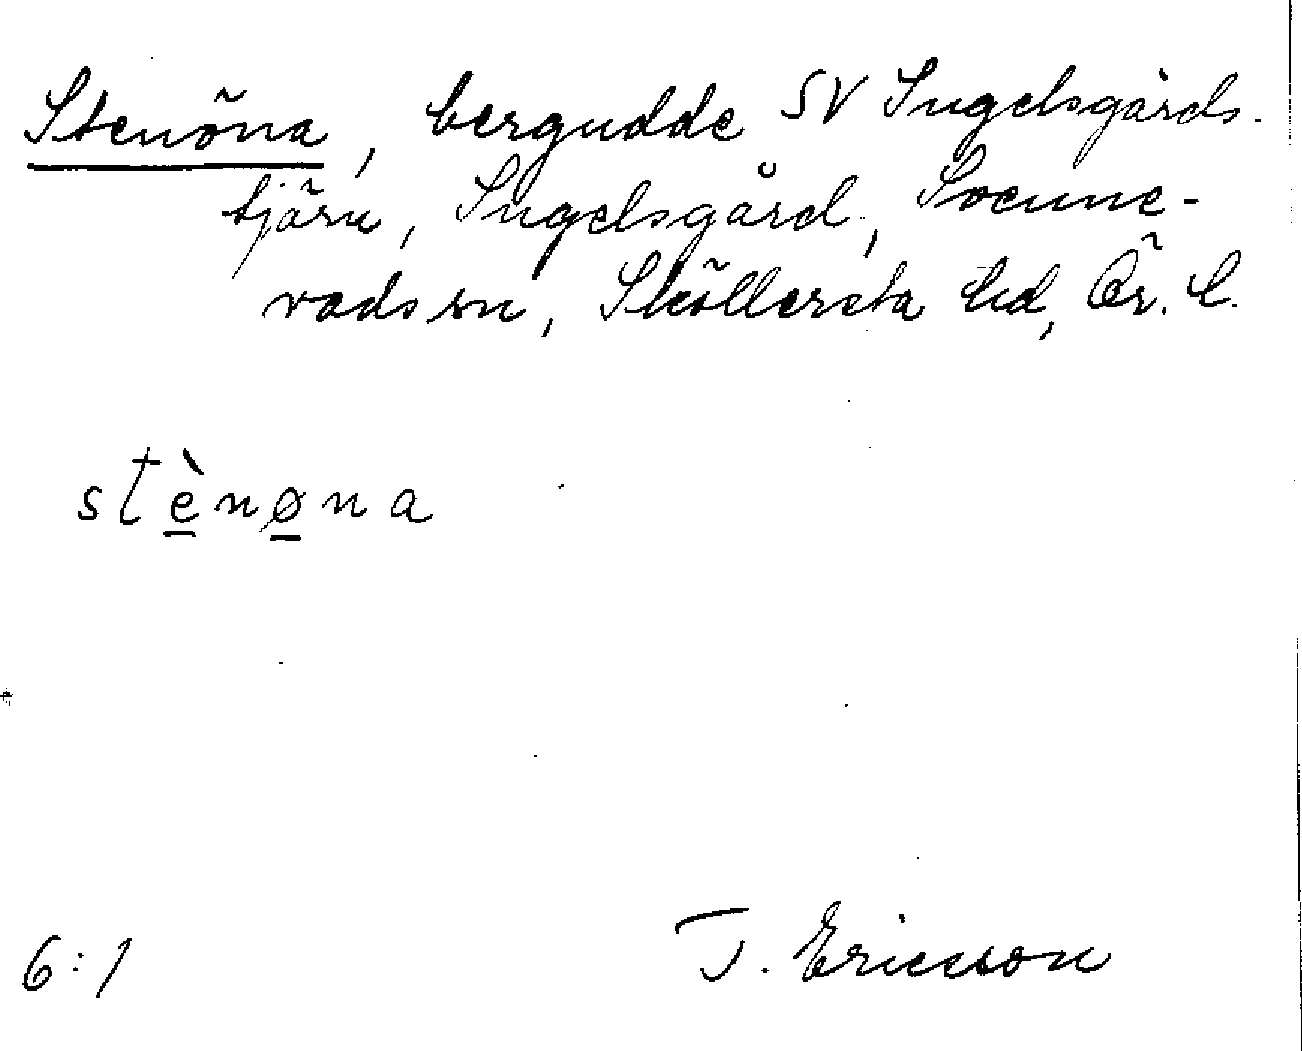 Stenöna, bergudde SV Ingelsgårds-
tjärn, Ingelsgård, Svenne-
vads sn, Sköllersta hd, Ör. l.
stènøna
6:1 T. Ericsson